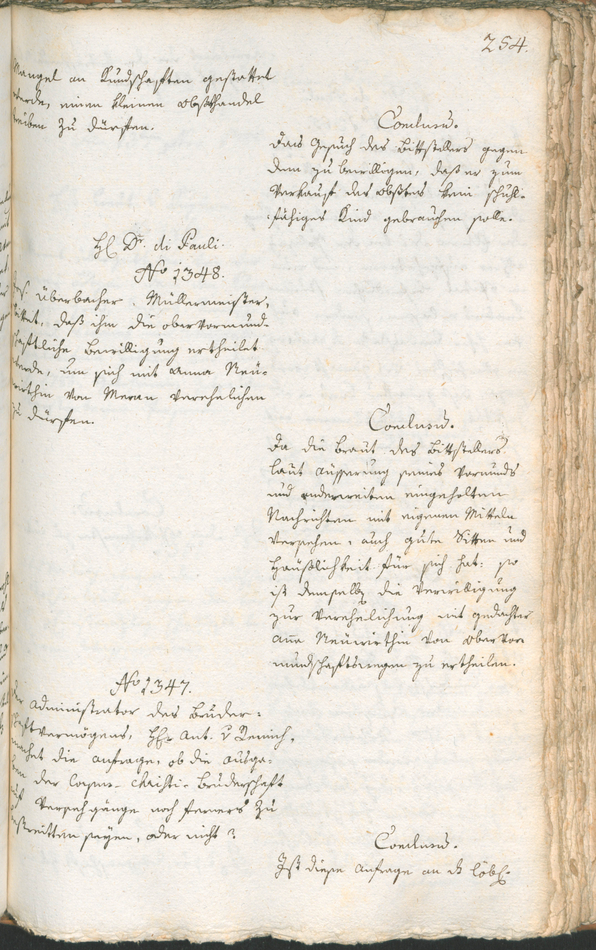 254.
Mangel an Kundschaften gestattet
werde, einen kleinen Obsthandel
treiben zu dürfen.
Conclusum.
Das Gesuch des Bittstellers gegen
dem zu bewilligen, daß er zum
Verkauf des Obstes kein schul-
fähiges Kind gebrauchen solle.
H. Dr. di Pauli.
No 1348.
Jos. Überbacher, Müllermeister,
bittet, daß ihm die obervormund-
schaftliche Bewilligung ertheilet
werde, um sich mit Anna Neu-
wirthin von Meran verehelichen
zu dürfen.
Conclusum.
Da die Braut des Bittstellers
laut Äusserung seines Vormunds
und anderweiten eingeholten
Nachrichten mit eigenen Mitteln
versehen, auch gute Sitten und
Häußlichkeit für sich hat: so
ist demselben die Verwilligung
zur Verehelichung mit gedachter
Anna Neuwirthin von Obervor
mundschaftswegen zu ertheilen.
No 1347.
Der Administrator des Bruder-
schaftvermögens, Hr Ant. v Remich,
machet die Anfrage, ob die Ausga-
ben der Corpus-Christi-Bruderschaft
auf Versehgänge noch ferners zu
bestreitten seyen, oder nicht?
Conclusum.
Ist diese Anfrage an d. löbl.